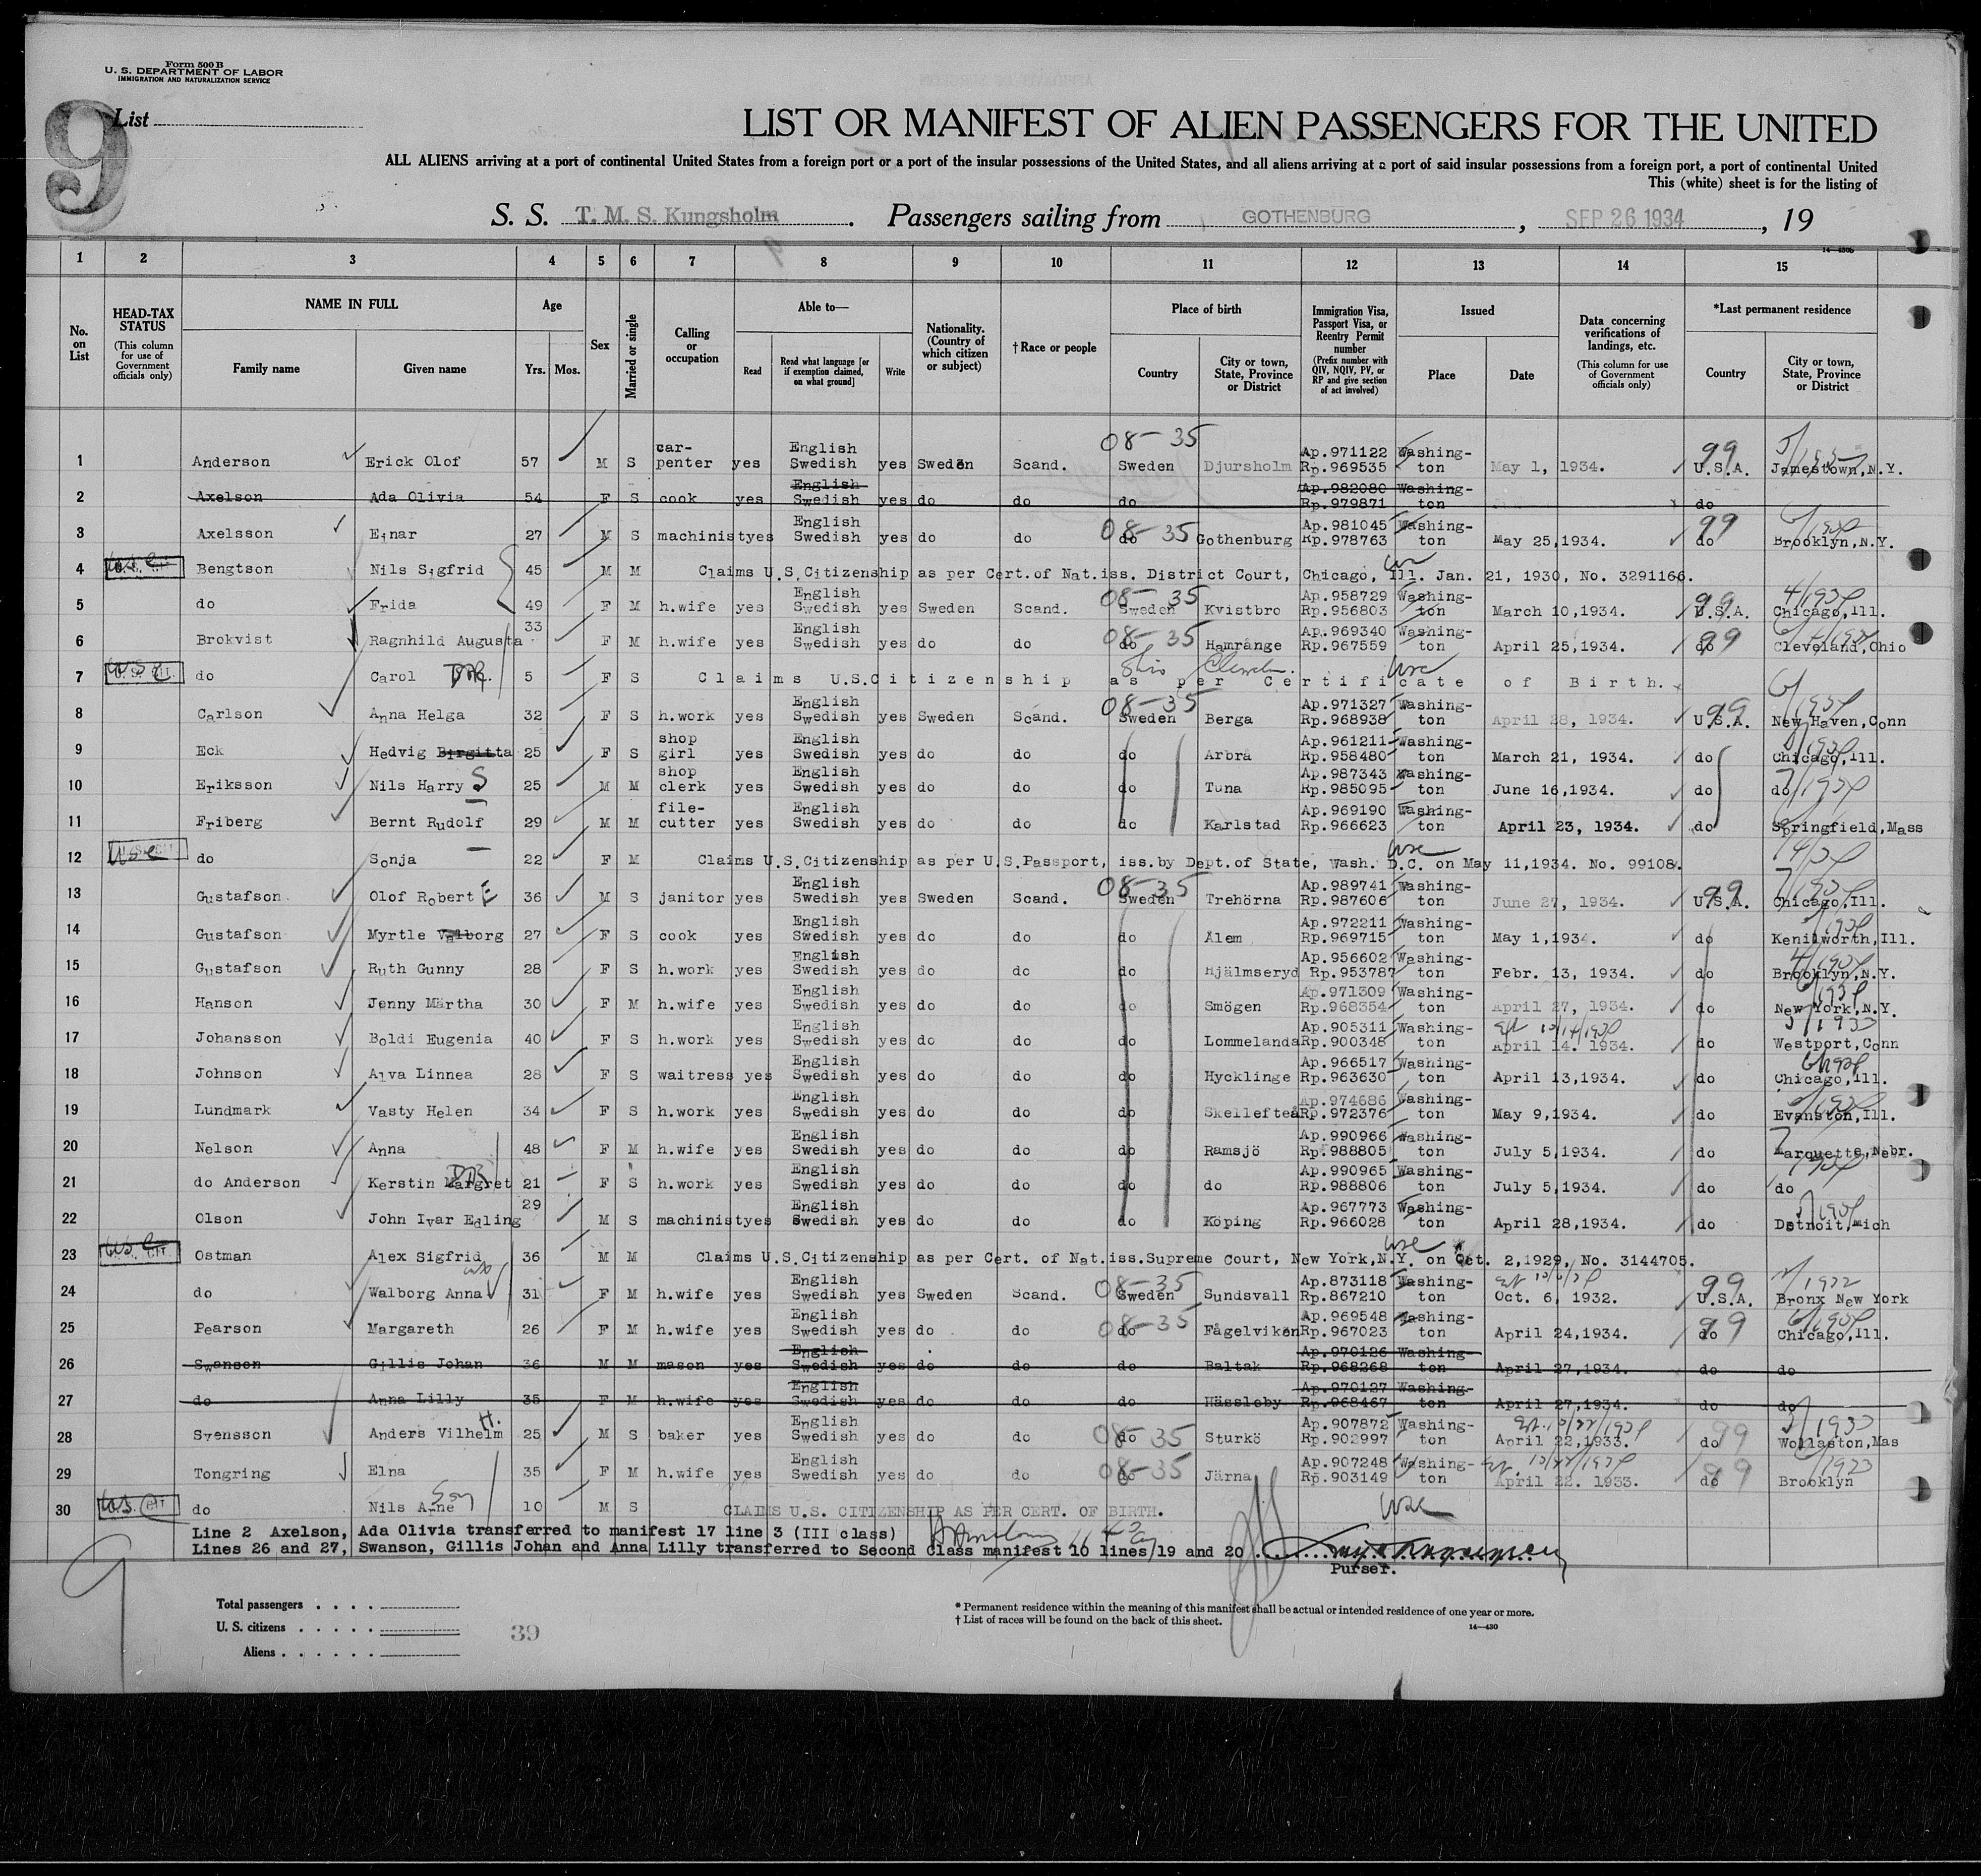 Form 500 B
U. S. DEPARTMENT OF LABOR
IMMIGRATION AND NATURALIZATION SERVICE
9
List
LIST OR MANIFEST OF ALIEN PASSENGERS FOR THE UNITED
ALL ALIENS arriving at a port of continental United States from a foreign port or a port of the insular possessions of the United States, and all aliens arriving at a port of said insular possessions from a foreign port, a port of continental United
This (white) sheet is for the listing of
S. S. T. M. S. Kungsholm. Passengers sailing from GOTHENBURG, SEP 26 1934, 19
14—430b
1 2 3 4 5 6 7 8 9 10 11 12 13 14 15
No. on List
HEAD-TAX STATUS (This column for use of Government officials only)
NAME IN FULL Family name Given name
Age Yrs. Mos.
Sex
Married or single
Calling or occupation
Able to— Read Read what language [or if exemption claimed, on what ground] Write
Nationality. (Country of which citizen or subject)
†Race or people
Place of birth Country City or town, State, Province or District
Immigration Visa, Passport Visa, or Reentry Permit number (Prefix number with QIV, NQIV, PV, or RP and give section of act involved)
Issued Place Date
Data concerning verifications of landings, etc. (This column for use of Government officials only)
*Last permanent residence Country City or town, State, Province or District
1 Anderson Erick Olof 57 M S car-penter yes English Swedish yes Sweden Scand. 08-35 Sweden Djursholm Ap.971122 Rp.969535 Washing-ton May 1, 1934. 99 U.S.A. Jamestown,N.Y.
2 Axelson Ada Olivia 54 F S cook yes English Swedish yes do do do Ap.982080 Rp.979871 Washing-ton do
3 Axelsson Einar 27 M S machinist yes English Swedish yes do do 08-35 do Gothenburg Ap.981045 Rp.978763 Washing-ton May 25,1934. 99 do Brooklyn,N.Y.
4 Bengtson Nils Sigfrid 45 M M Claims U.S.Citizenship as per Cert.of Nat.iss. District Court, Chicago, Ill. Jan. 21, 1930, No. 3291166.
5 do Frida 49 F M h.wife yes English Swedish yes Sweden Scand. 08-35 Sweden Kvistbro Ap.958729 Rp.956803 Washing-ton March 10,1934. 99 U.S.A. Chicago,Ill. 4/1934
6 Brokvist Ragnhild Augusta 33 F M h.wife yes English Swedish yes do do 08-35 do Hamrånge Ap.969340 Rp.967559 Washing-ton April 25,1934. 99 do Cleveland,Ohio
7 do Carol 5 F S Claims U.S.Citizenship as per Certificate of Birth. Ohio
8 Carlson Anna Helga 32 F S h.work yes English Swedish yes Sweden Scand. 08-35 Sweden Berga Ap.971327 Rp.968938 Washing-ton April 28, 1934. 99 U.S.A. New Haven,Conn
9 Eck Hedvig Birgitta 25 F S shop girl yes English Swedish yes do do do Arbrå Ap.961211 Rp.958480 Washing-ton March 21, 1934. do Chicago,Ill.
10 Eriksson Nils Harry S 25 M M shop clerk yes English Swedish yes do do do Tuna Ap.987343 Rp.985095 Washing-ton June 16,1934. do do 7/1934
11 Friberg Bernt Rudolf 29 M M file-cutter yes English Swedish yes do do do Karlstad Ap.969190 Rp.966623 Washing-ton April 23, 1934. do Springfield,Mass
12 do Sonja 22 F M Claims U.S.Citizenship as per U.S.Passport, iss.by Dept.of State, Wash. D.C. on May 11,1934. No. 99108.
13 Gustafson Olof Robert E 36 M S janitor yes English Swedish yes Sweden Scand. 08-35 Sweden Trehörna Ap.989741 Rp.987606 Washing-ton June 27, 1934. 99 U.S.A. Chicago,Ill.
14 Gustafson Myrtle Valborg 27 F S cook yes English Swedish yes do do do Ålem Ap.972211 Rp.969715 Washing-ton May 1,1934. do Kenilworth,Ill.
15 Gustafson Ruth Gunny 28 F S h.work yes English Swedish yes do do do Hjälmseryd Ap.956602 Rp.953787 Washing-ton Febr. 13, 1934. do Brooklyn,N.Y.
16 Hanson Jenny Märtha 30 F M h.wife yes English Swedish yes do do do Smögen Ap.971309 Rp.968354 Washing-ton April 27, 1934. do New York,N.Y.
17 Johansson Boldi Eugenia 40 F S h.work yes English Swedish yes do do do Lommelanda Ap.905311 Rp.900348 Washing-ton April 14. 1934. do Westport,Conn
18 Johnson Alva Linnea 28 F S waitress yes English Swedish yes do do do Hycklinge Ap.966517 Rp.963630 Washing-ton April 13,1934. do Chicago,Ill.
19 Lundmark Vasty Helen 34 F S h.work yes English Swedish yes do do do Skellefteå Ap.974686 Rp.972376 Washing-ton May 9,1934. do Evanston,Ill.
20 Nelson Anna 48 F M h.wife yes English Swedish yes do do do Ramsjö Ap.990966 Rp.988805 Washing-ton July 5,1934. do Marquette,Nebr.
21 do Anderson Kerstin Margret 21 F S h.work yes English Swedish yes do do do do Ap.990965 Rp.988806 Washing-ton July 5,1934. do do
22 Olson John Ivar Edling 29 M S machinist yes English Swedish yes do do do Köping Ap.967773 Rp.966028 Washing-ton April 28,1934. do Detroit,Mich
23 Ostman Alex Sigfrid 36 M M Claims U.S.Citizenship as per Cert. of Nat.iss.Supreme Court, New York,N.Y. on Oct. 2,1929, No. 3144705.
24 do Walborg Anna 31 F M h.wife yes English Swedish yes Sweden Scand. 08-35 Sweden Sundsvall Ap.873118 Rp.867210 Washing-ton Oct. 6, 1932. 99 U.S.A. Bronx New York
25 Pearson Margareth 26 F M h.wife yes English Swedish yes do do 08-35 do Fågelviken Ap.969548 Rp.967023 Washing-ton April 24,1934. 99 do Chicago,Ill.
26 Swanson Gillis Johan 36 M M mason yes English Swedish yes do do do Baltak Ap.970126 Rp.968268 Washing-ton April 27,1934. do do
27 do Anna Lilly 35 F M h.wife yes English Swedish yes do do do Hässleby Ap.970127 Rp.968467 Washing-ton April 27,1934. do do
28 Svensson Anders Vilhelm H. 25 M S baker yes English Swedish yes do do 08-35 do Sturkö Ap.907872 Rp.902997 Washing-ton April 22,1933. do 99 Wollaston,Mas
29 Tongring Elna 35 F M h.wife yes English Swedish yes do do 08-35 do Järna Ap.907248 Rp.903149 Washing-ton April 22. 1933. do 99 Brooklyn
30 do Nils Arne Son 10 M S CLAIMS U.S. CITIZENSHIP AS PER CERT. OF BIRTH.
Line 2 Axelson, Ada Olivia transferred to manifest 17 line 3 (III class)
Lines 26 and 27, Swanson, Gillis Johan and Anna Lilly transferred to Second Class manifest 10 lines 19 and 20
Purser.
Total passengers
U. S. citizens
Aliens
39
* Permanent residence within the meaning of this manifest shall be actual or intended residence of one year or more.
† List of races will be found on the back of this sheet.
14—430